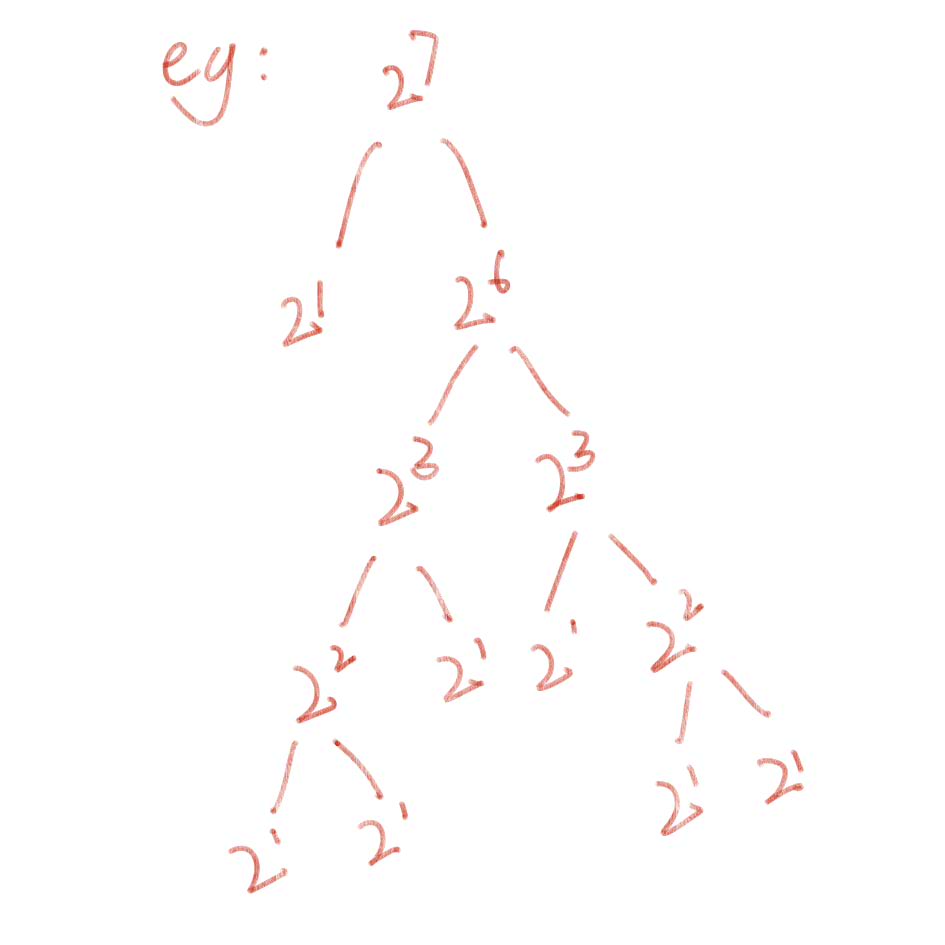 eg: 2^7
2^1 2^6
2^3 2^3
2^2 2^1 2^1 2^2
2^1 2^1 2^1 2^1